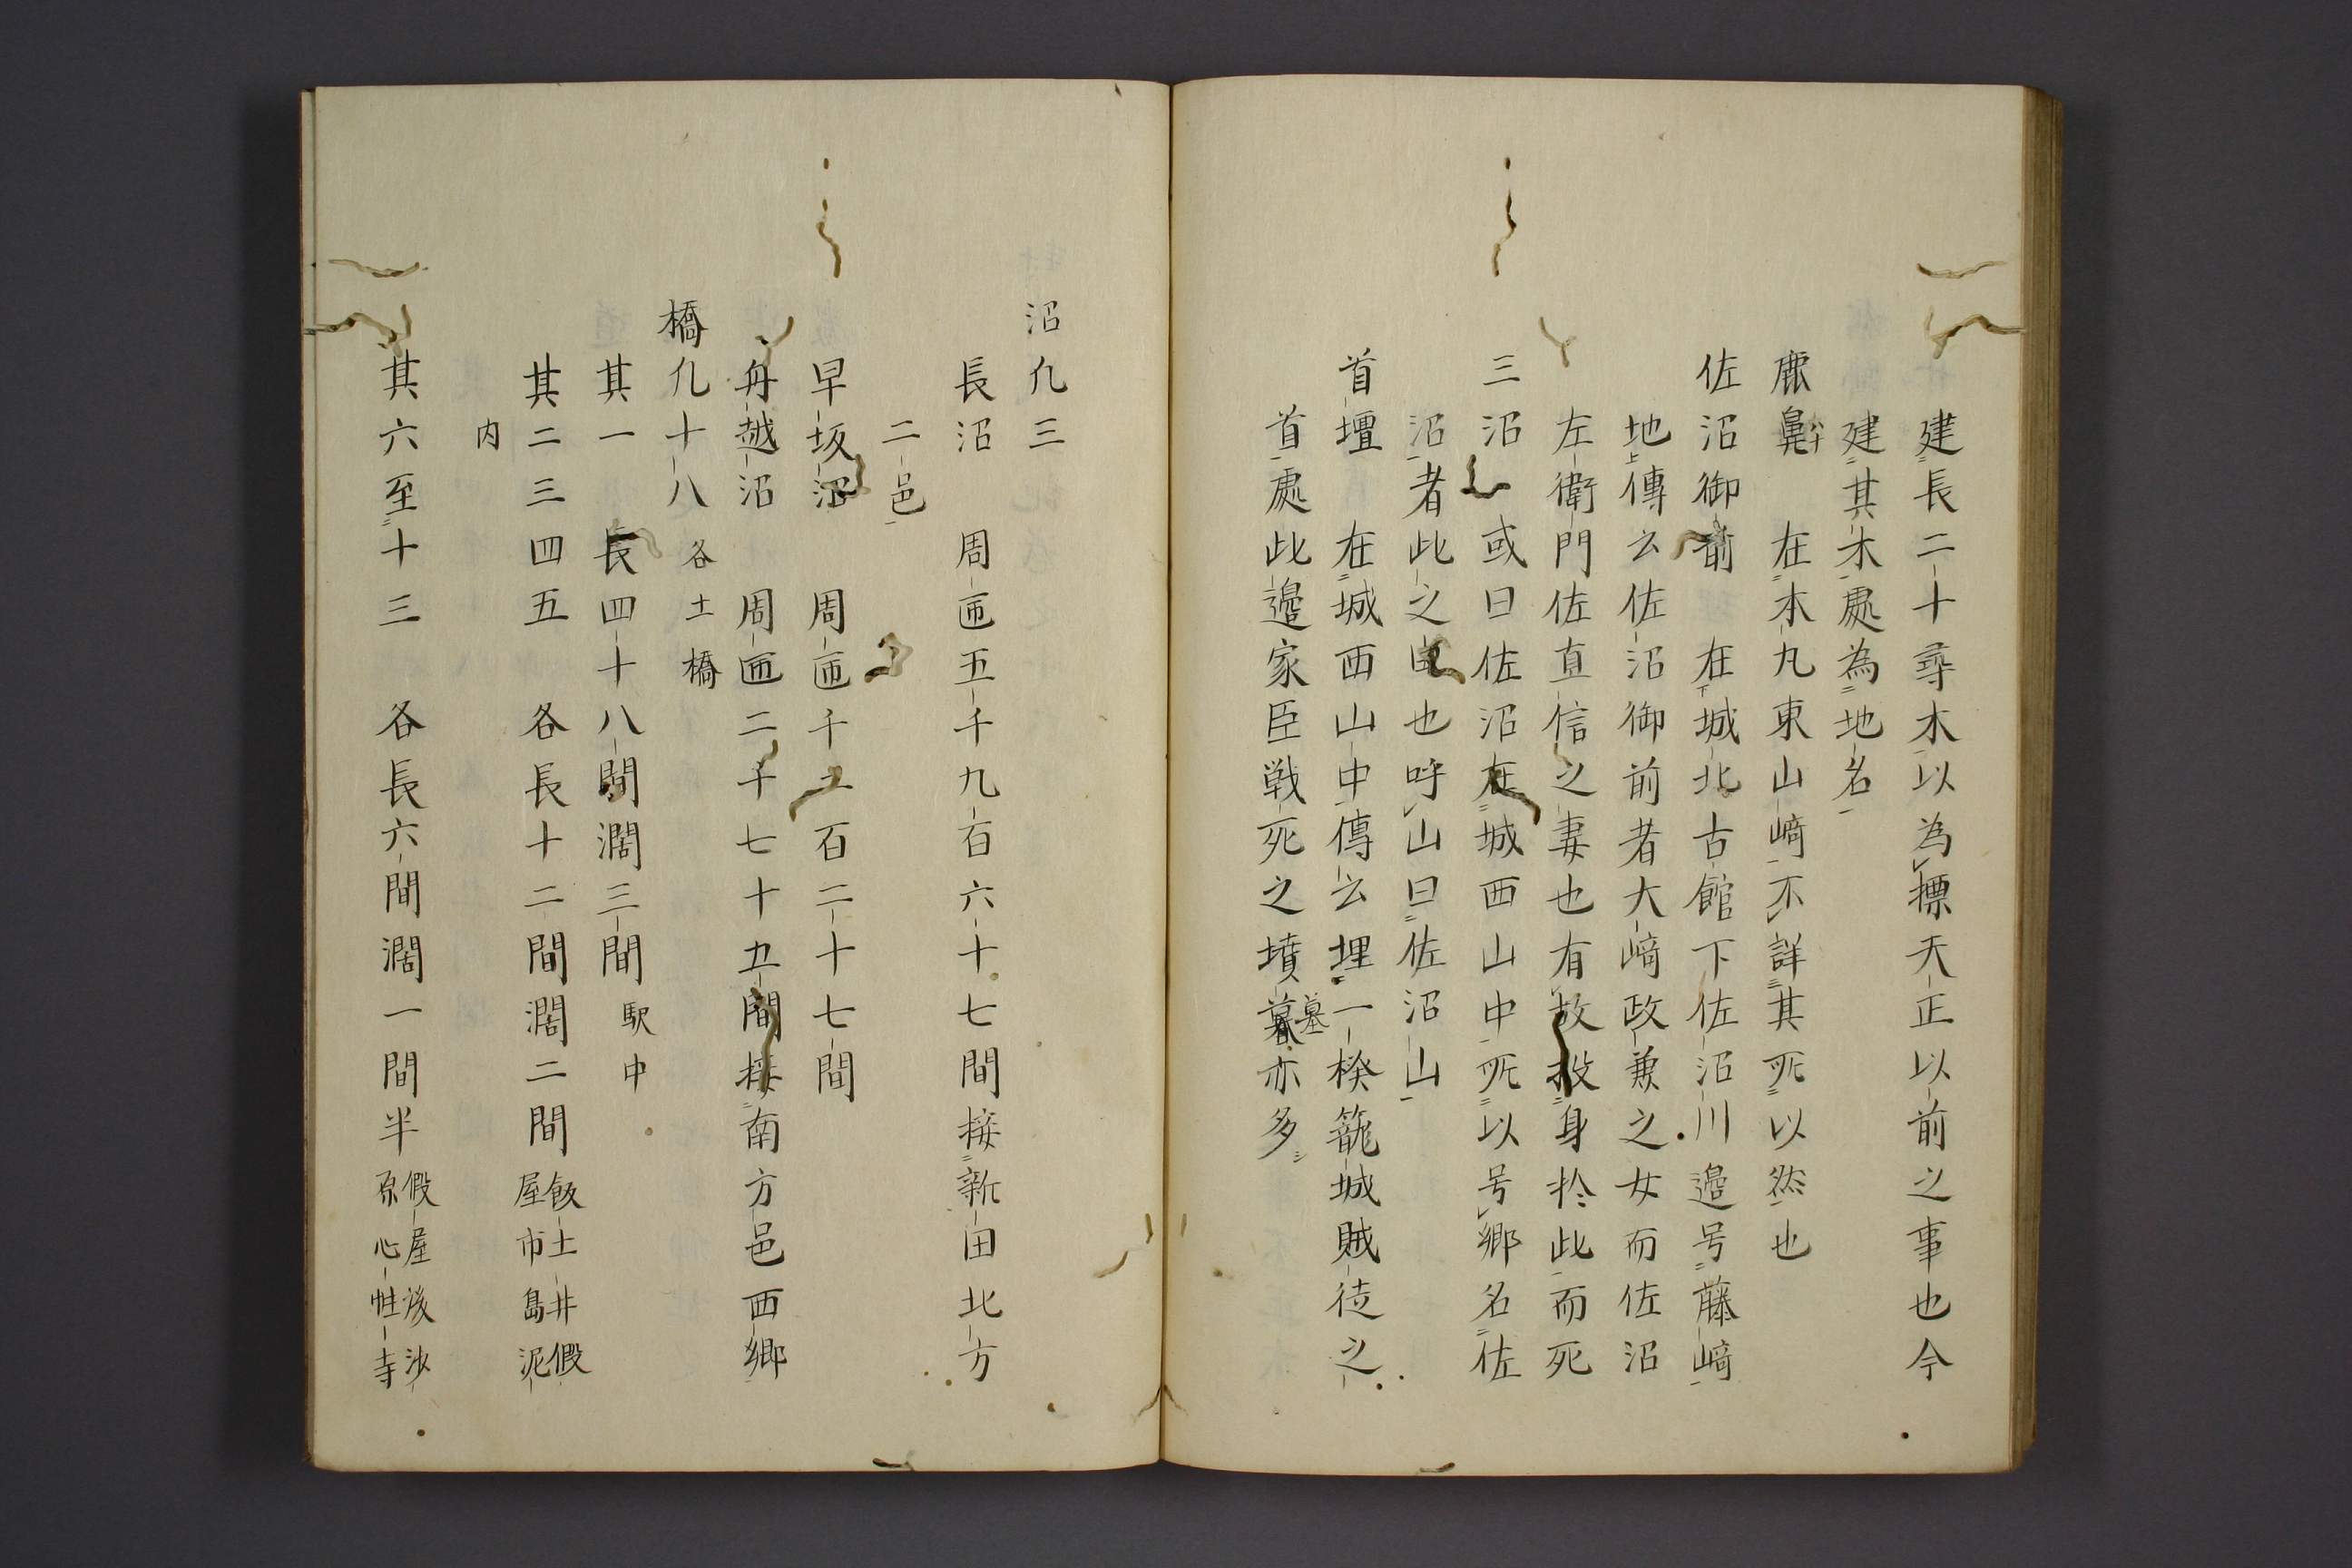 建長二十尋木以為標天正以前之事也今
建其木處為地名
鹿鼻 在本丸東山﨑不詳其所以然也
佐沼御前 在城北古館下佐沼川邉号藤﨑
地傳云佐沼御前者大﨑政兼之女而佐沼
左衛門佐直信之妻也有故投身於此而死
三沼 或曰佐沼在城西山中所以号郷名佐
沼者此之由也呼山曰佐沼山
首壇 在城西山中傳云埋一揆籠城賊徒之
首處此邉家臣戦死之墳墓亦多
沼凢三
長沼 周匝五千九百六十七間接新田北方
二邑
早坂沼 周匝千二百二十七間
舟越沼 周匝二千七十五間接南方邑西郷
橋凢十八 各土橋
其一 長四十八間濶三間 駅中
其二三四五 各長十二間濶二間 飯土井假屋市島泥
内
其六至十三 各長六間濶一間半 假屋後沙原心性寺